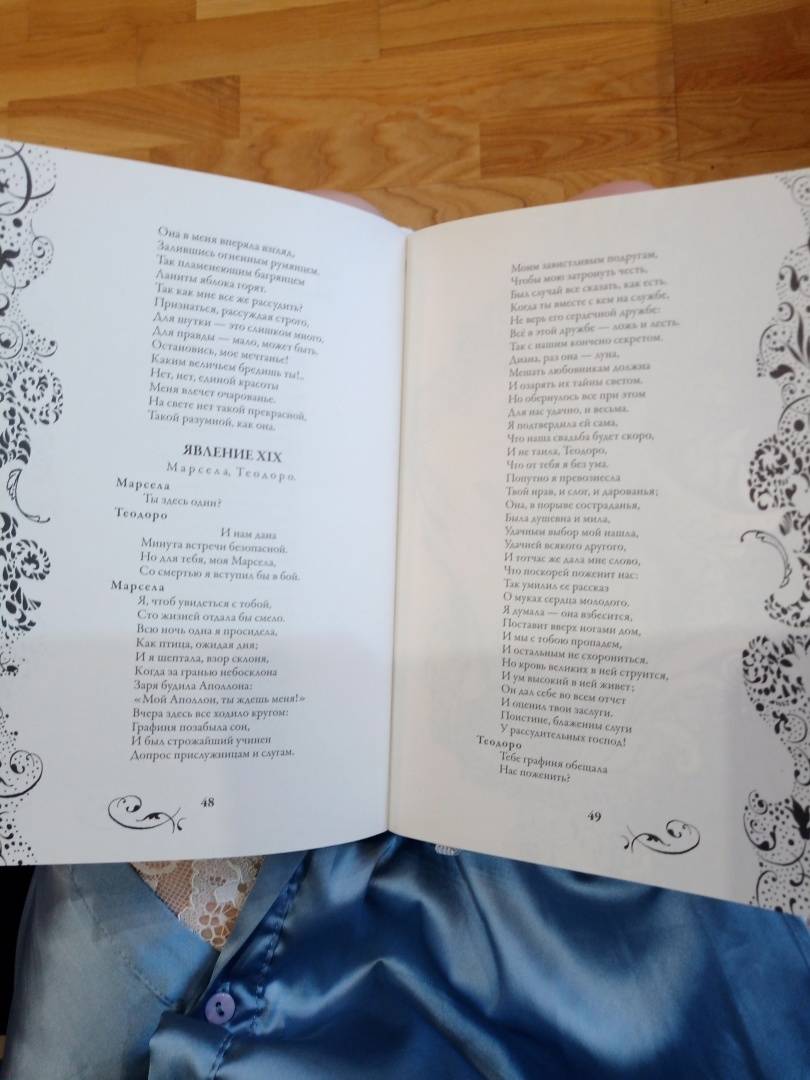 Она в меня вперяла взгляд,
Залившись огненным румянцем.
Так пламенеющим багрянцем
Ланиты яблока горят.
Так как мне все же рассудить?
Признаться, рассуждая строго,
Для шутки — это слишком много,
Для правды — мало, может быть.
Остановись, мое мечтанье!
Каким величьем бредишь ты!..
Нет, нет, единой красоты
Меня влечет очарованье.
На свете нет такой прекрасной,
Такой разумной, как она.
ЯВЛЕНИЕ XIX
Марсела, Теодоро.
Марсела
Ты здесь один?
Теодоро
И нам дана
Минута встречи безопасной.
Но для тебя, моя Марсела,
Со смертью я вступил бы в бой.
Марсела
Я, чтоб увидеться с тобой,
Сто жизней отдала бы смело.
Всю ночь одна я просидела,
Как птица, ожидая дня;
И я шептала, взор склоня,
Когда за гранью небосклона
Заря будила Аполлона:
«Мой Аполлон, ты ждешь меня!»
Вчера здесь все ходило кругом:
Графиня позабыла сон,
И был строжайший учинен
Допрос прислужницам и слугам.
48
Моим завистливым подругам,
Чтобы мою затронуть честь,
Был случай все сказать, как есть.
Когда ты вместе с кем на службе,
Не верь его сердечной дружбе:
Всё в этой дружбе — ложь и лесть.
Так с нашим кончено секретом.
Диана, раз она — луна,
Мешать любовникам должна
И озарять их тайны светом.
Но обернулось все при этом
Для нас удачно, и весьма.
Я подтвердила ей сама,
Что наша свадьба будет скоро,
И не таила, Теодоро,
Что от тебя я без ума.
Попутно я превознесла
Твой нрав, и слог, и дарованья;
Она, в порыве состраданья,
Была душевна и мила,
Удачным выбор мой нашла,
Удачней всякого другого,
И тотчас же дала мне слово,
Что поскорей поженит нас:
Так умилил ее рассказ
О муках сердца молодого.
Я думала — она взбесится,
Поставит вверх ногами дом,
И мы с тобою пропадем,
И остальным не схорониться.
Но кровь великих в ней струится,
И ум высокий в ней живет;
Он дал себе во всем отчет
И оценил твои заслуги.
Поистине, блаженны слуги
У рассудительных господ!
Теодоро
Тебе графиня обещала
Нас поженить?
49